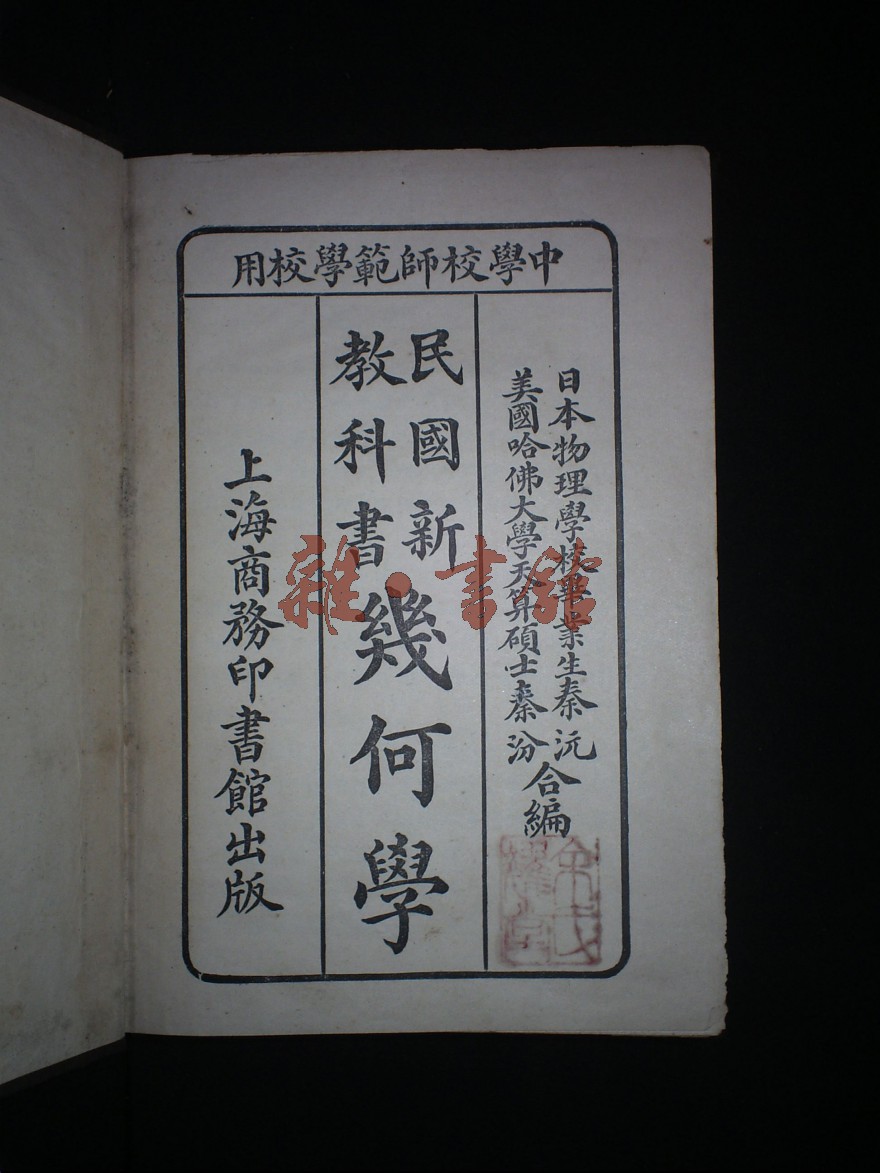 中學校師範學校用
日本物理學校畢業生秦沅
美國哈佛大學天算碩士秦汾
合編
民國新
教科書
幾何學
上海商務印書館出版
雜·書館